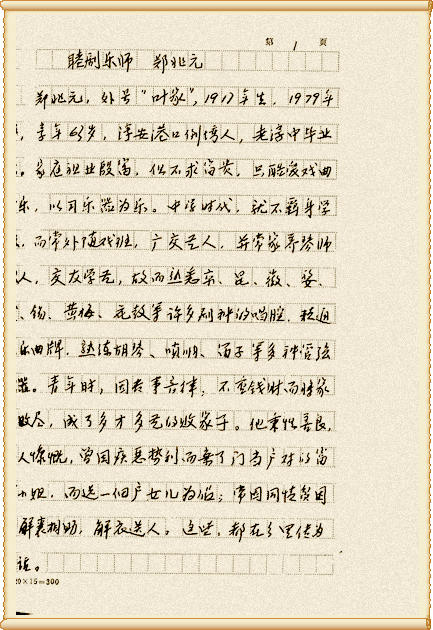 第 1 頁
睦剧乐师 郑兆元
郑兆元，外号“叶家”，1917年生，1979年
，享年63岁，淳安港口例傍人，老淳中毕业
。家庭祖业殷富，但不求富贵，只酷爱戏曲
乐，以习乐器为乐。中学时代，就不务身学
，而常外随戏班，广交艺人，并常家寻琴师
人，交友学艺，故而熟悉京、昆、徽、婺、
、锡、黄梅、花鼓等许多剧种的唱腔，精通
乐曲牌，熟练胡琴、唢呐、笛子等多种管弦
器。青年时，因专事音律，不重钱财而将家
败尽，成了多才多艺的败家子。他秉性善良，
人慷慨，曾因疾恶势利而弃了门当户对的富
小姐，而选一佃户女儿为伍；常因同情贫困
解囊相助，解衣送人。这些，都在乡里传为
话。
20×15=300